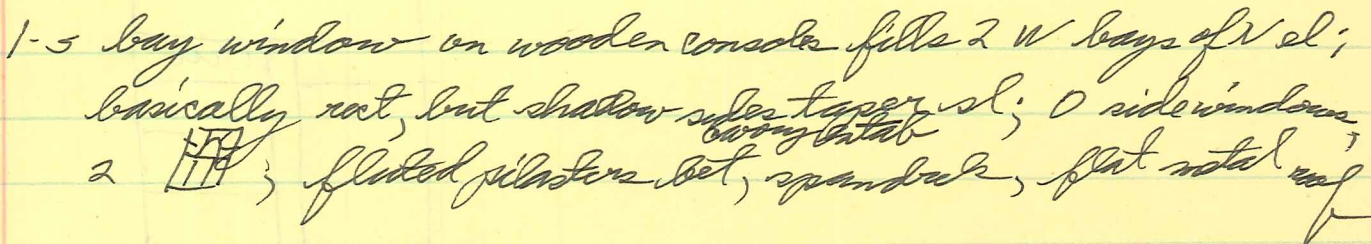 1-s bay window on wooden consoles fills 2 W bays of N el;
basically rect, but shallow sides taper sl; 0 sidewindows,
2 ; fluted pilasters bet, spandrels, flat metal roof